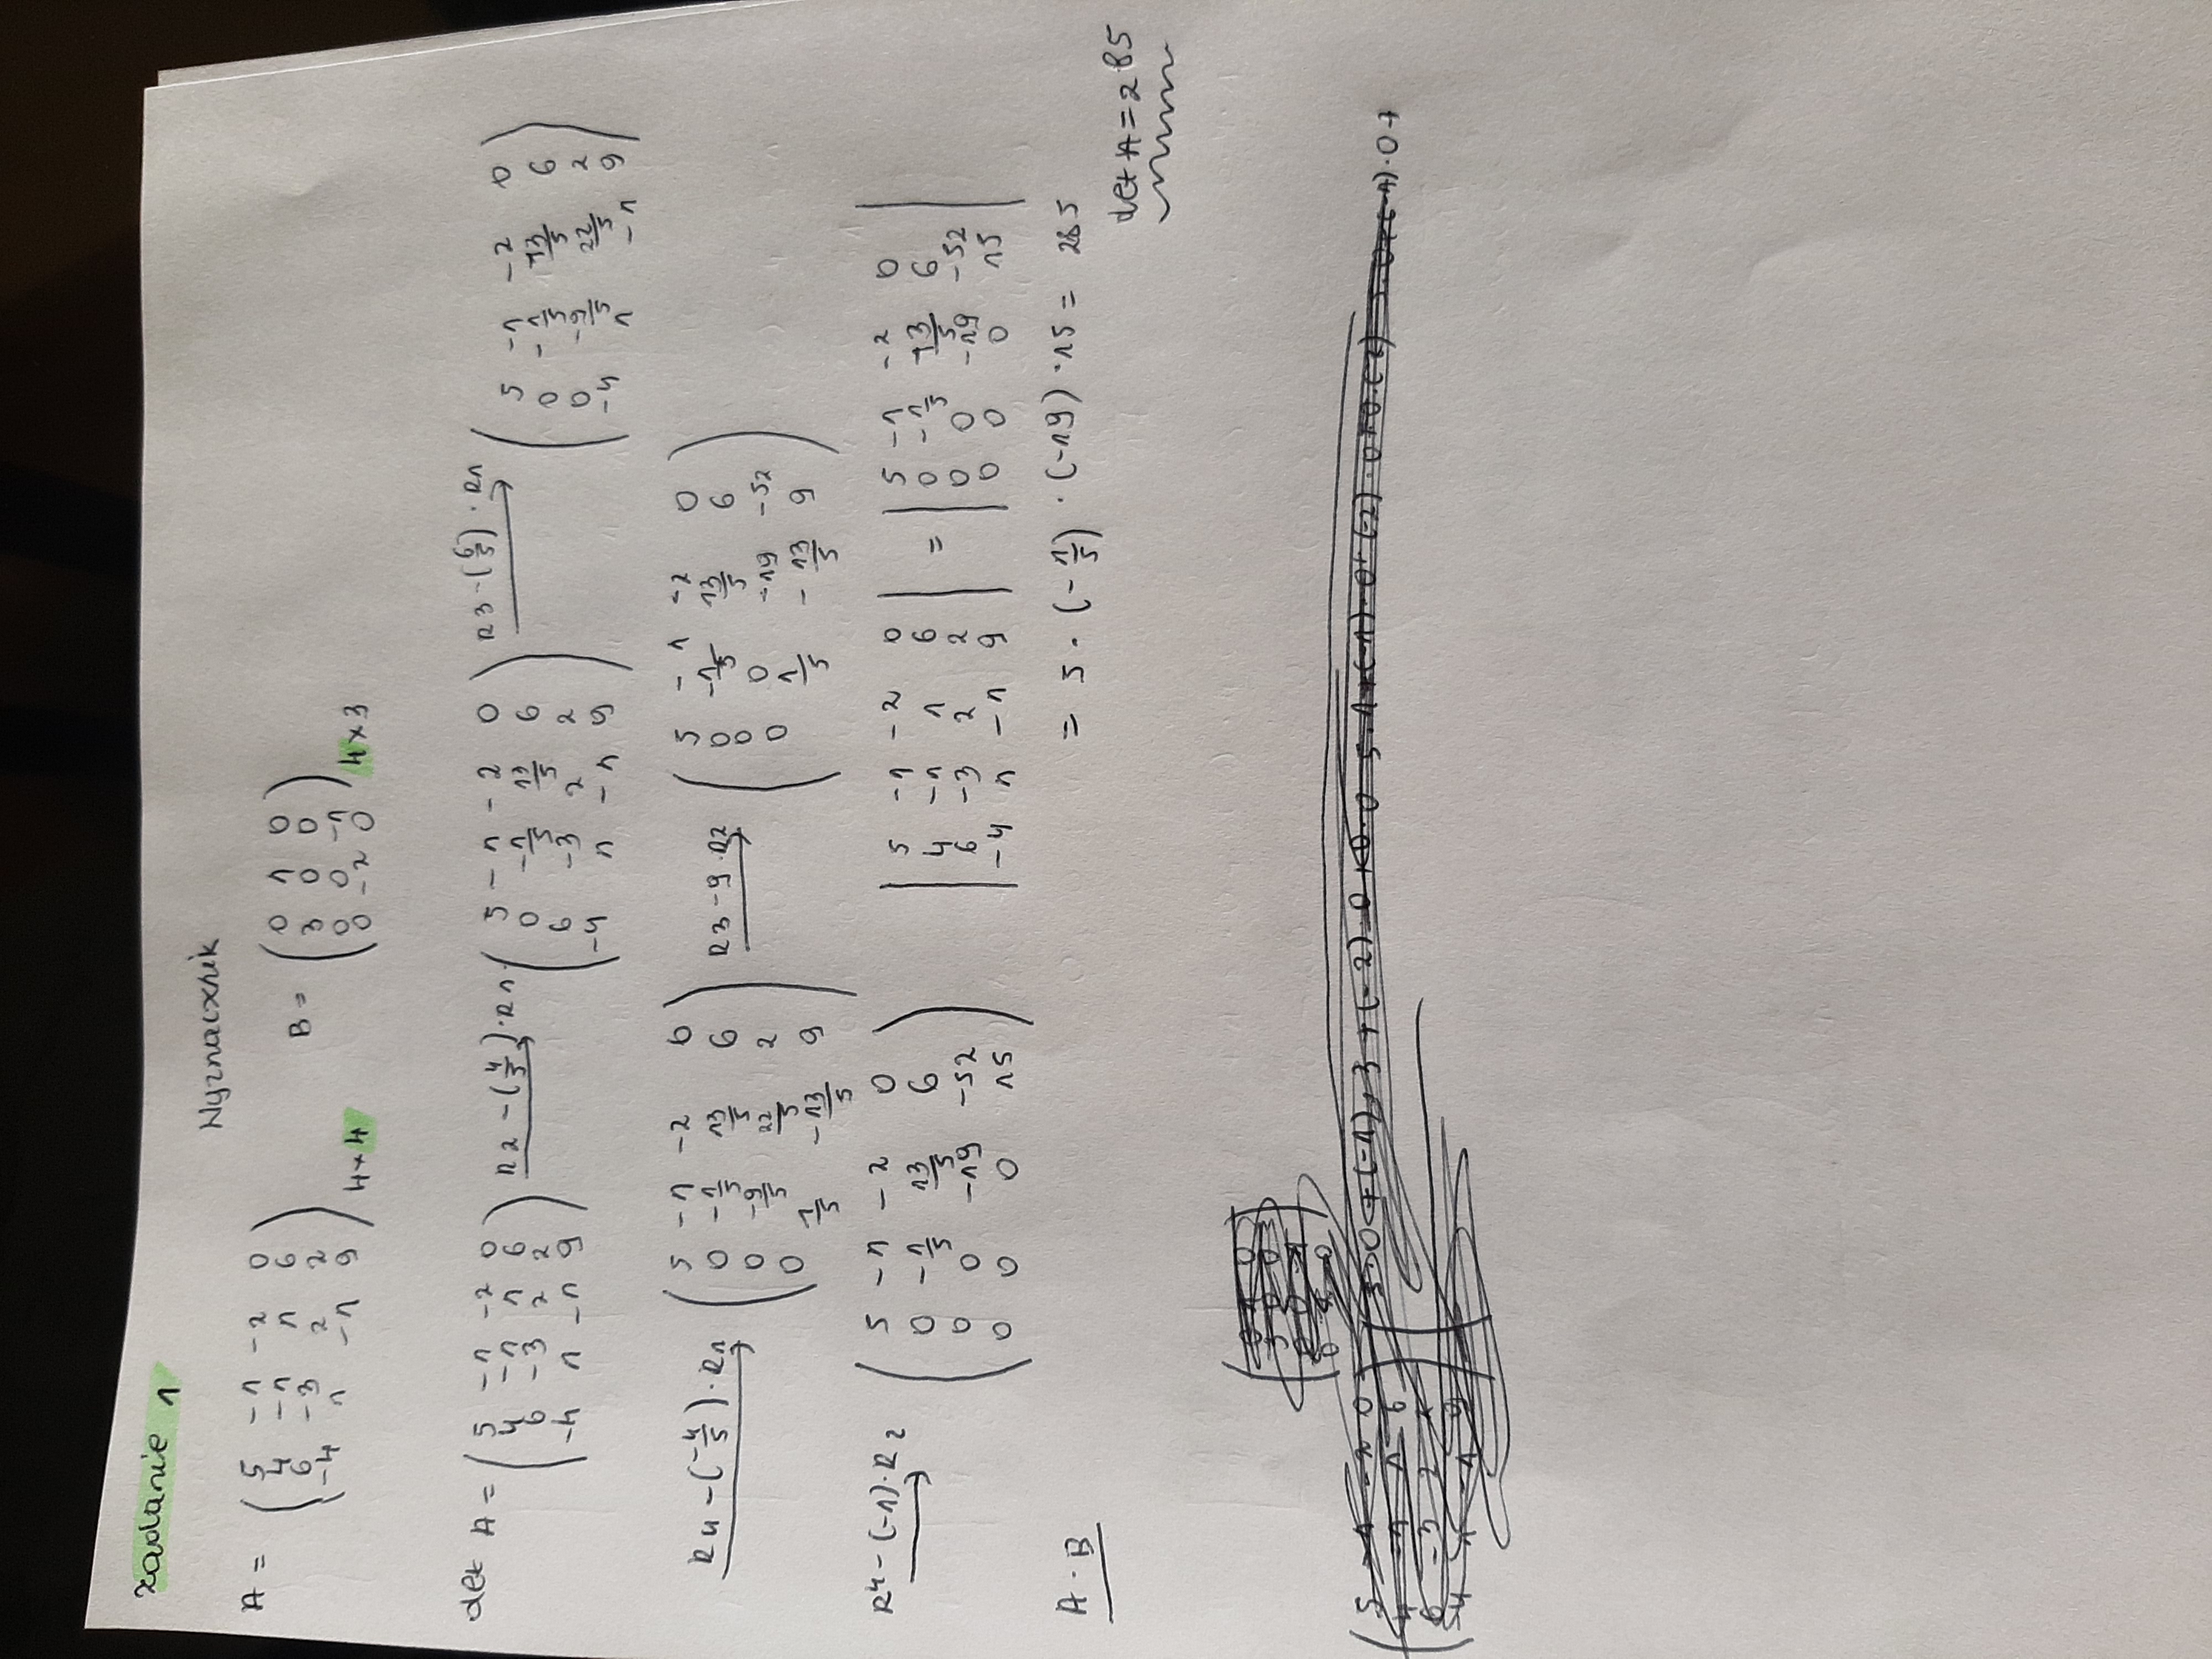 zadanie 1
Wyznacznik
A = ( 5 -1 -2 0
4 -1 1 6
6 -3 2 2
-4 1 -1 9 ) 4×4
B = ( 0 1 0
3 0 0
0 0 -1
0 -2 0 ) 4×3
det A = ( 5 -1 -2 0
4 -1 1 6
6 -3 2 2
-4 1 -1 9 )
R2 - (4/5) · R1
( 5 -1 -2 0
0 -1/5 13/5 6
6 -3 2 2
-4 1 -1 9 )
R3 - (6/5) · R1
( 5 -1 -2 0
0 -1/5 13/5 6
0 -9/5 22/5 2
-4 1 -1 9 )
R4 - (-4/5) · R1
( 5 -1 -2 0
0 -1/5 13/5 6
0 -9/5 22/5 2
0 1/5 -13/5 9 )
R3 - 9 · R2
( 5 -1 -2 0
0 -1/5 13/5 6
0 0 -19 -52
0 1/5 -13/5 9 )
R4 - (-1) · R2
( 5 -1 -2 0
0 -1/5 13/5 6
0 0 -19 -52
0 0 0 15 )
| 5 -1 -2 0
4 -1 1 6
6 -3 2 2
-4 1 -1 9 |
=
| 5 -1 -2 0
0 -1/5 13/5 6
0 0 -19 -52
0 0 0 15 |
= 5 · (-1/5) · (-19) · 15 = 285
det A = 285
A · B